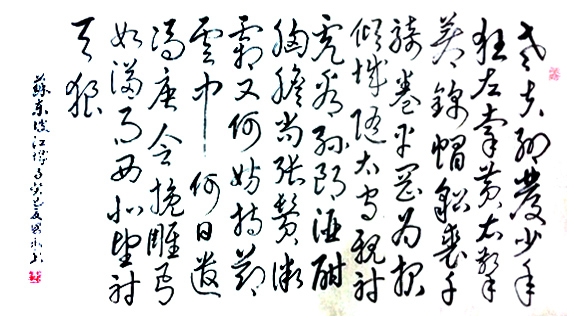 老夫聊發少年
狂左牽黃右擎
蒼錦帽貂裘千
騎卷平岡為報
傾城隨太守親射
虎看孫郎酒酣
胸膽尚張鬢微
霜又何妨持節
雲中何日遣
馮唐會挽雕弓
如滿月西北望射
天狼
蘇東坡江城子